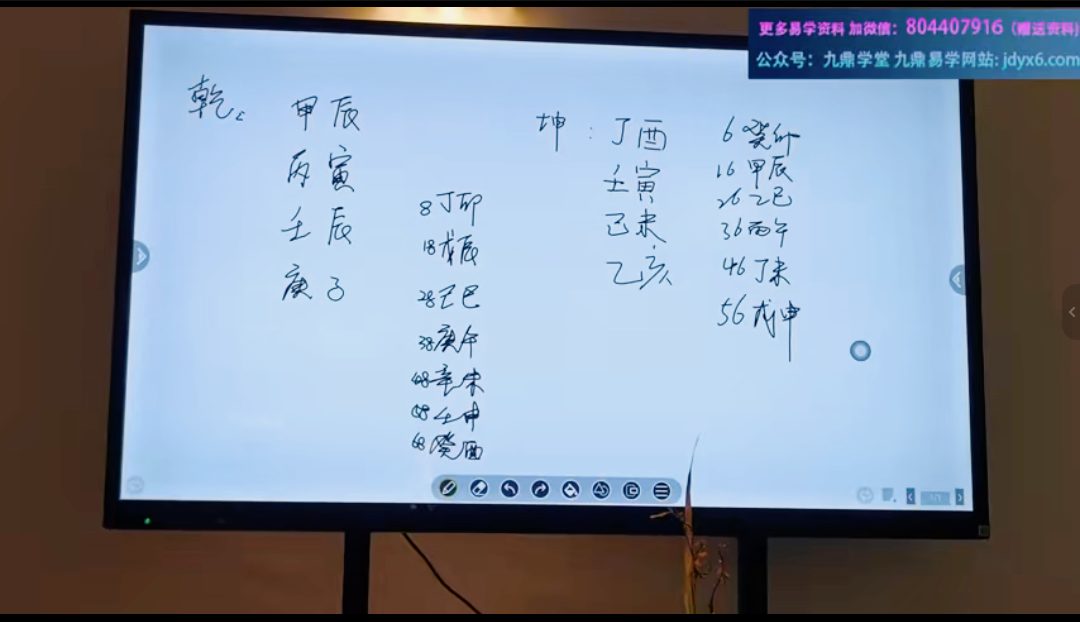 更多易学资料 加微信: 804407916 (赠送资料)
公众号: 九鼎学堂 九鼎易学网站: jdyx6.com
乾:
甲辰
丙寅
壬辰
庚子
8丁卯
18戊辰
28己巳
38庚午
48辛未
58壬申
68癸酉
坤:
丁酉
壬寅
己未
乙亥
6癸卯
16甲辰
26乙巳
36丙午
46丁未
56戊申
1/1